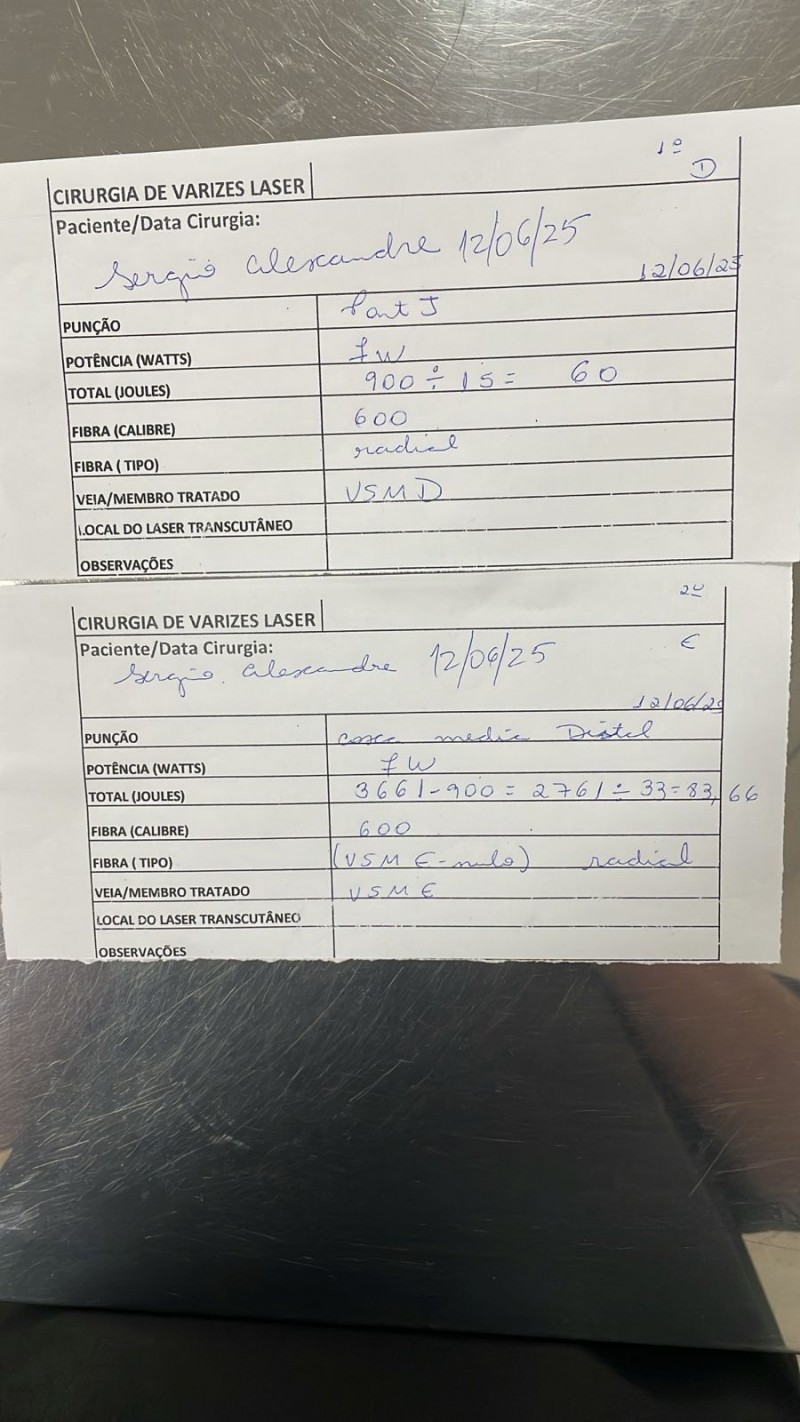 1º
D
CIRURGIA DE VARIZES LASER
Paciente/Data Cirurgia:
Sergio Alexandre 12/06/25
12/06/25
PUNÇÃO
POTÊNCIA (WATTS) 7W
TOTAL (JOULES) 900 ÷ 15 = 60
FIBRA (CALIBRE) 600
FIBRA ( TIPO) radial
VEIA/MEMBRO TRATADO VSM D
LOCAL DO LASER TRANSCUTÂNEO
OBSERVAÇÕES
2º
CIRURGIA DE VARIZES LASER
E
Paciente/Data Cirurgia:
Sergio Alexandre 12/06/25
12/06/25
PUNÇÃO coxa media Distal
POTÊNCIA (WATTS) 7W
TOTAL (JOULES) 3661-900 = 2761 ÷ 33=83,66
FIBRA (CALIBRE) 600
FIBRA ( TIPO) (VSM E- ) radial
VEIA/MEMBRO TRATADO VSM E
LOCAL DO LASER TRANSCUTÂNEO
OBSERVAÇÕES